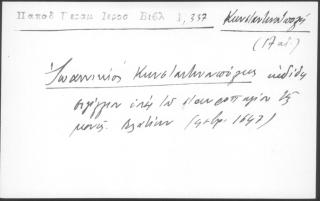 Παπαδ Γερασ Ιεροσ Βιβλ 1,337
Κωνσταντινουπολη
(17 αι.)
Ἰωαννικίος Κωνσταντινουπόλεως ἐκδίδει
σιγίλλιον ὑπὲρ τοῦ σταυροπηγίου τῆς
μονῆς Βλατέων (1647)